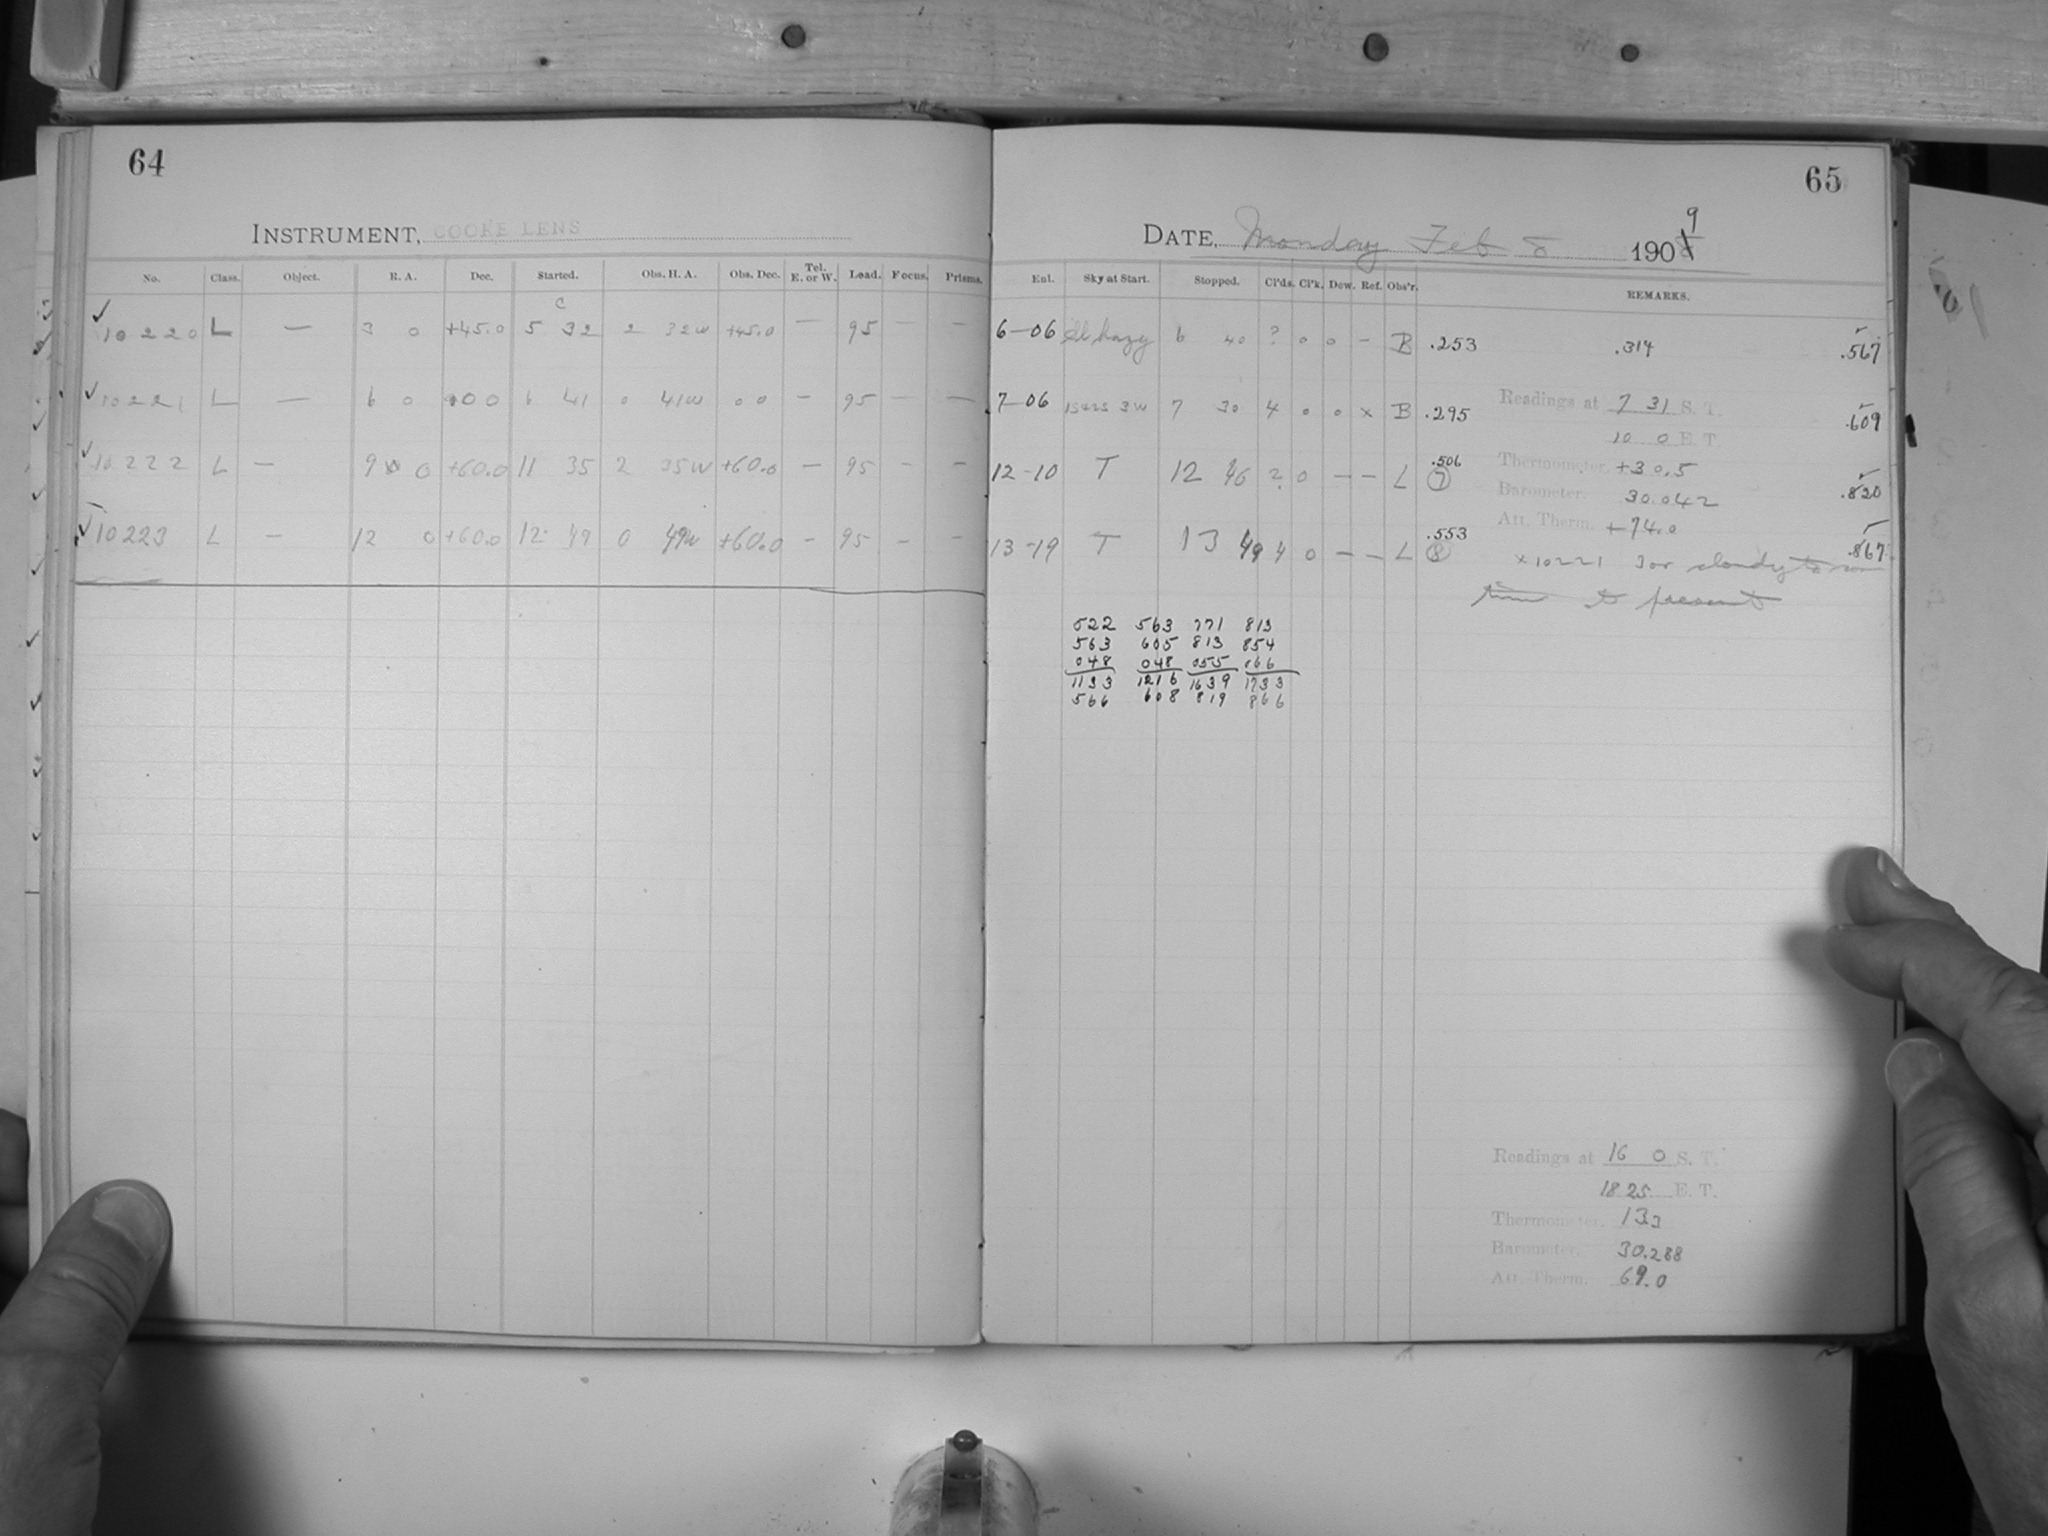 64
INSTRUMENT, COOKE LENS
No. Class. Object. R. A. Dec. Started. Obs. H. A. Obs. Dec. Tel. E. or W. Load. Focus. Prisms.
C
✓ 10220 L — 3 0 +45.0 5 32 2 32w +45.0 — 95 — —
✓ 10221 L — 6 0 00 6 41 0 41w 00 — 95 — —
✓ 10222 L — 9 0 +60.0 11 35 2 35w +60.0 — 95 — —
✓ 10223 L — 12 0 +60.0 12 49 0 49w +60.0 — 95 — —
65
DATE, Monday Feb 8 1909
Exl. Sky at Start. Stopped. Cl'ds. Cl'k. Dew. Ref. Obs'r. REMARKS.
6-06 Sl hazy 6 40 ? 0 0 - B .253 .314 .567
7-06 3w 7 30 4 0 0 x B .295 .609
12-10 T 12 46 ? 0 — — L .506 7 .820
13-19 T 13 49 4 0 — — L .553 8 .867
Readings at 7 31 S. T.
10 0 E. T.
Thermometer, +30.5
Barometer. 30.042
Att. Therm. +74.0
x 10221 cloudy to
time to present
522 563 771 813
563 605 813 854
048 048 055 066
1133 1216 1639 1733
566 608 819 866
Readings at 16 0 S. T.
18 25 E. T.
Thermometer. 13.3
Barometer. 30.288
Att. Therm. 69.0